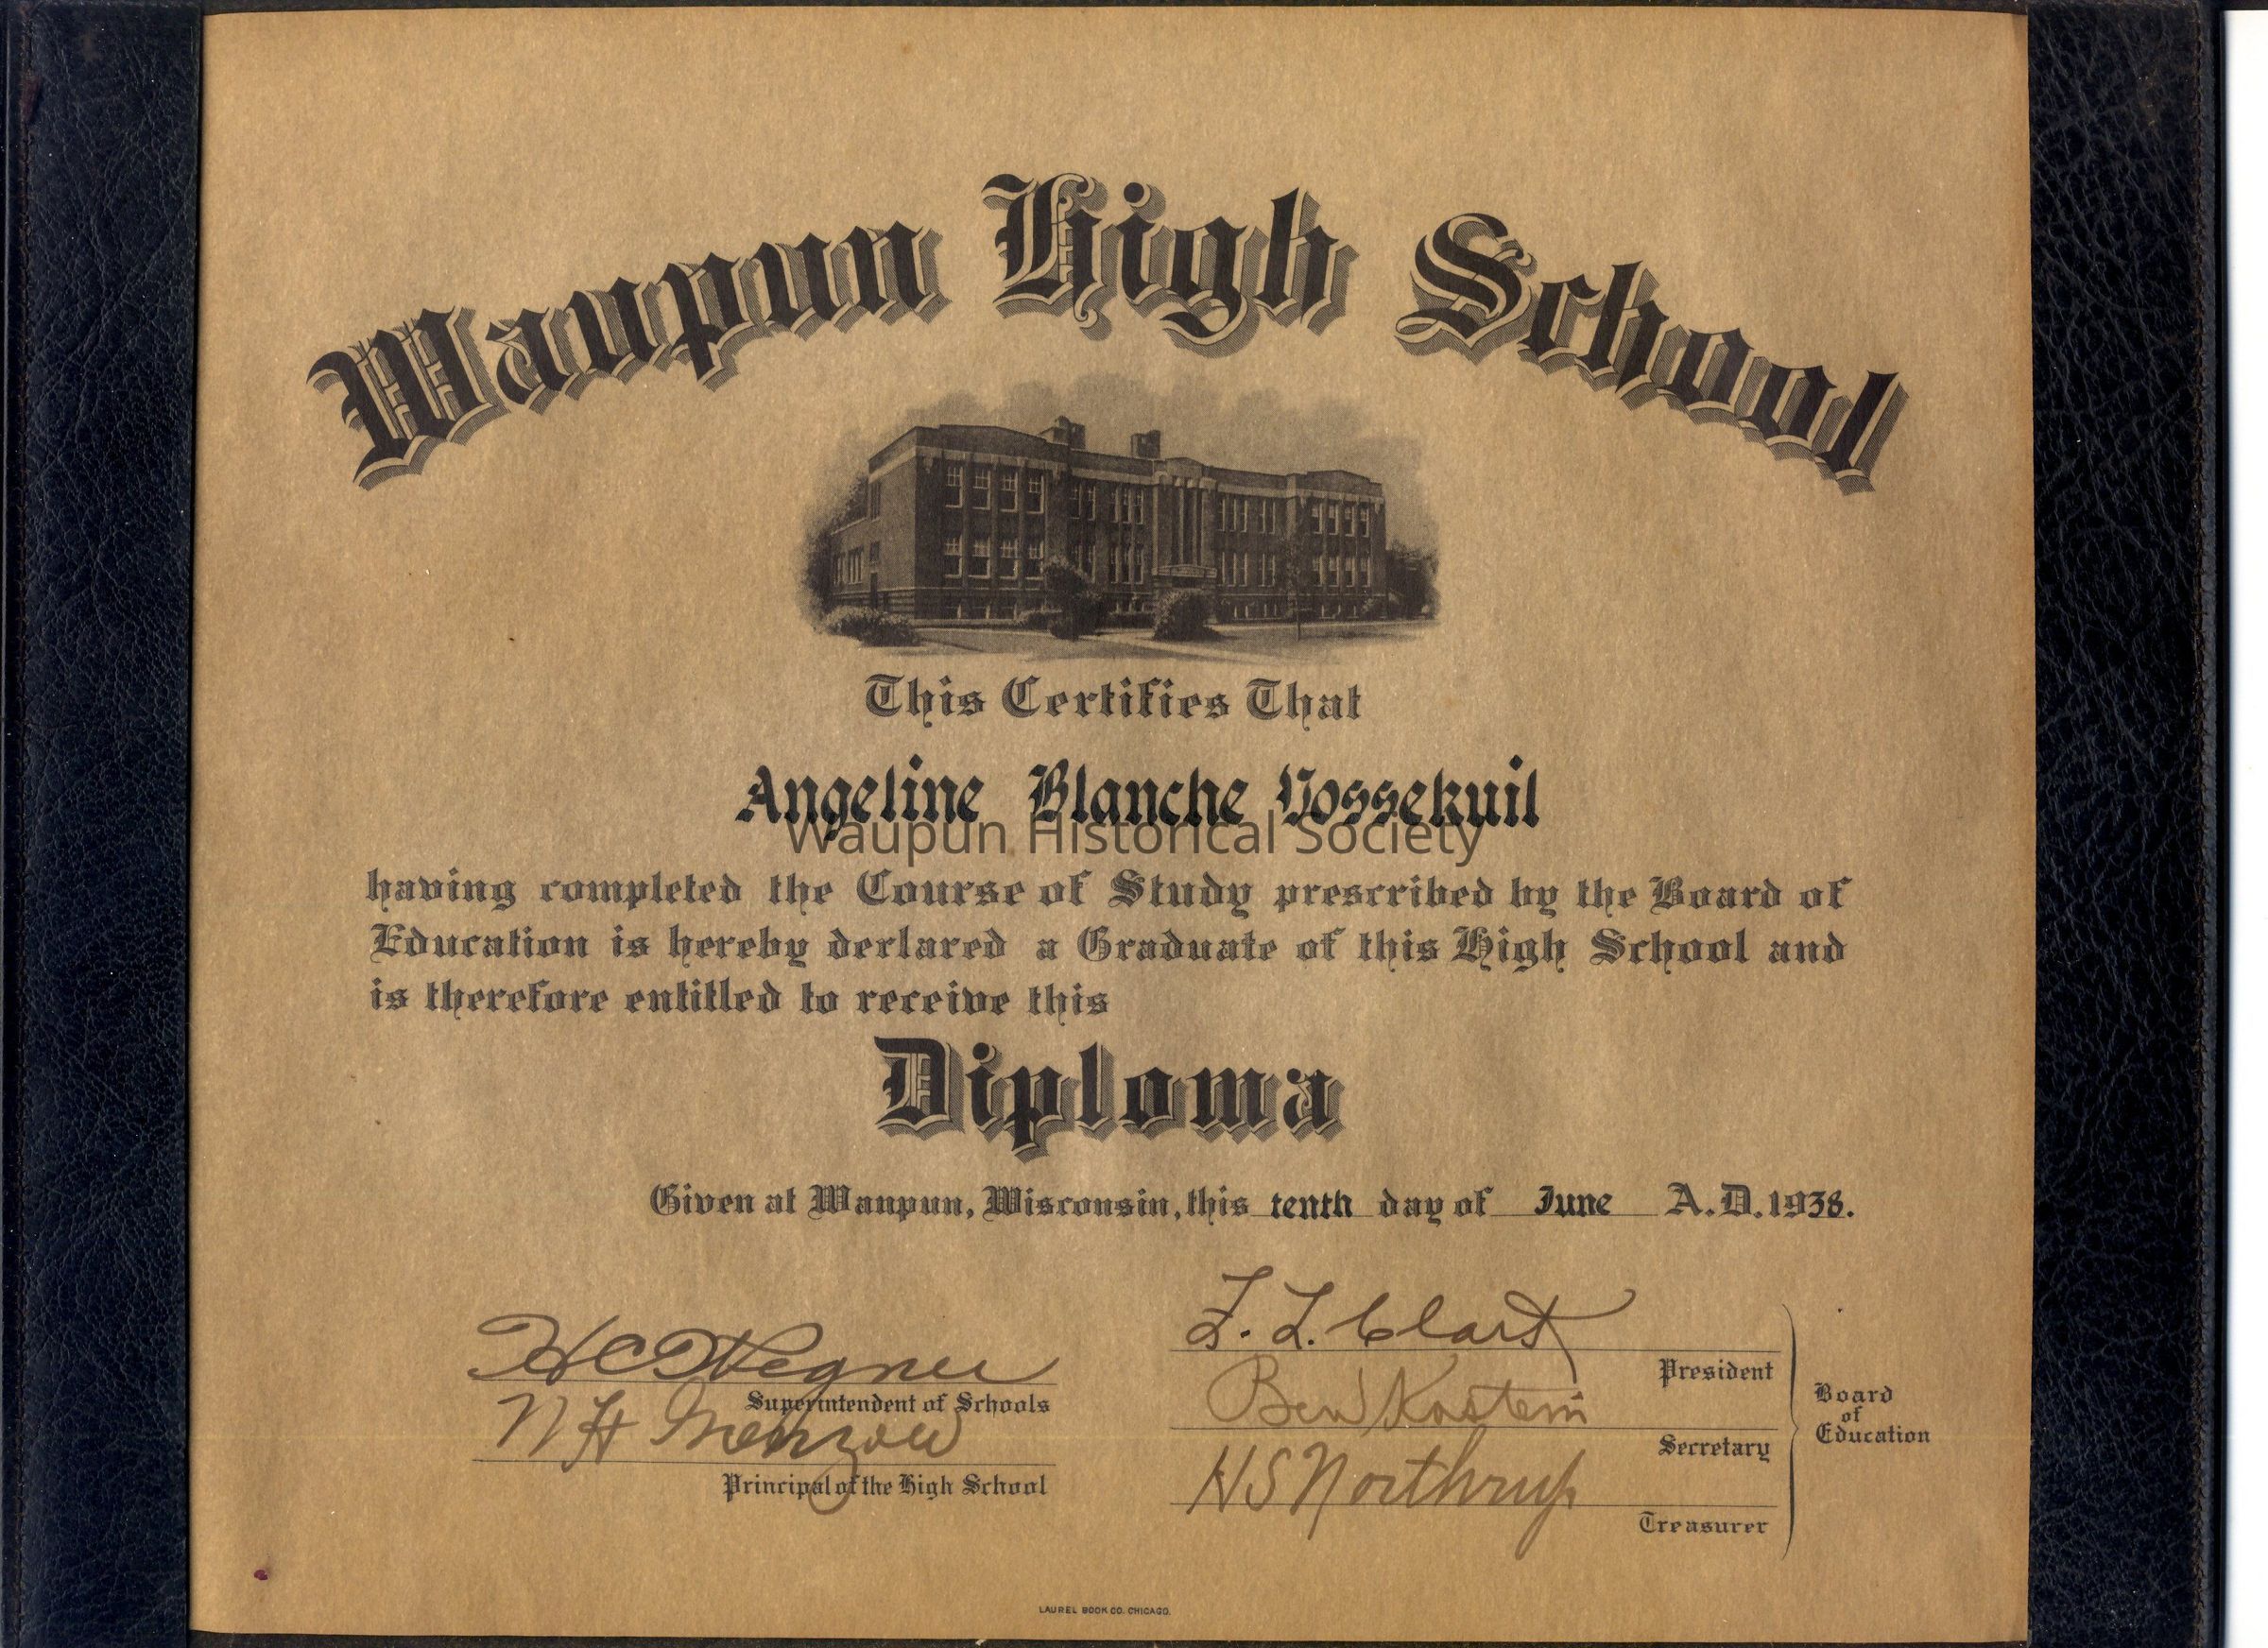 Waupun High School
This Certifies That
Angeline Blanche Vossekuil
Waupun Historical Society
having completed the Course of Study prescribed by the Board of
Education is hereby declared a Graduate of this High School and
is therefore entitled to receive this
Diploma
Given at Waupun, Wisconsin, this tenth day of June A.D. 1938.
H C Wegner
Superintendent of Schools
Principal of the High School
F. L. Clark
President
Ben Kastein
Secretary
H S Northrup
Treasurer
Board
of
Education
LAUREL BOOK CO. CHICAGO.